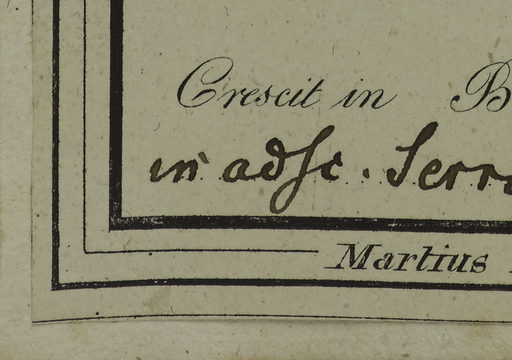 Crescit in B
in adsc. Serr
Martius